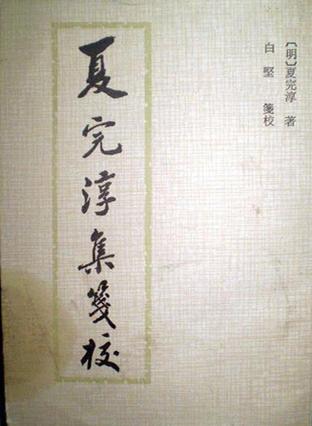 〔明〕夏完淳 著
白堅 箋校
夏完淳集箋校